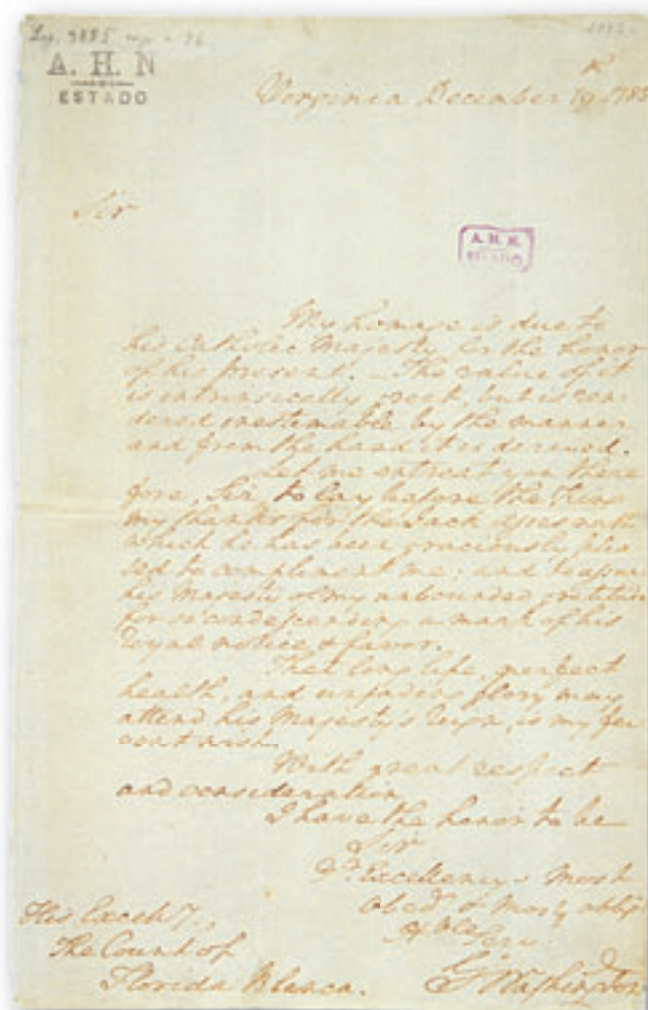 Leg. 3885
A. H. N
ESTADO
Virginia December 19th 1785
Sir
A. H. N.
ESTADO
My homage is due to
his Catholic Majesty for the honor
of his present. The value of it
is intrinsically great, but is ren-
dered inestimable by the manner
and from the hand it is derived.
Let me entreat you there
fore, Sir to lay before the King
my thanks for the Jack Asses with
which he has been graciously plea
sed to compliment me; and to assure
his Majesty of my unbounded gratitude
for so condescending a mark of his
royal notice & favor.
That long life, perfect
health, and unfading glory may
attend his Majesty's reign, is my fer
vent wish.
With great respect
and consideration
I have the honor to be
Sir
Yr. Excellency's Most
Obedt. & most oblig
Hble Serv
His Excelly.
The Count of
Florida Blanca.
Go Washington